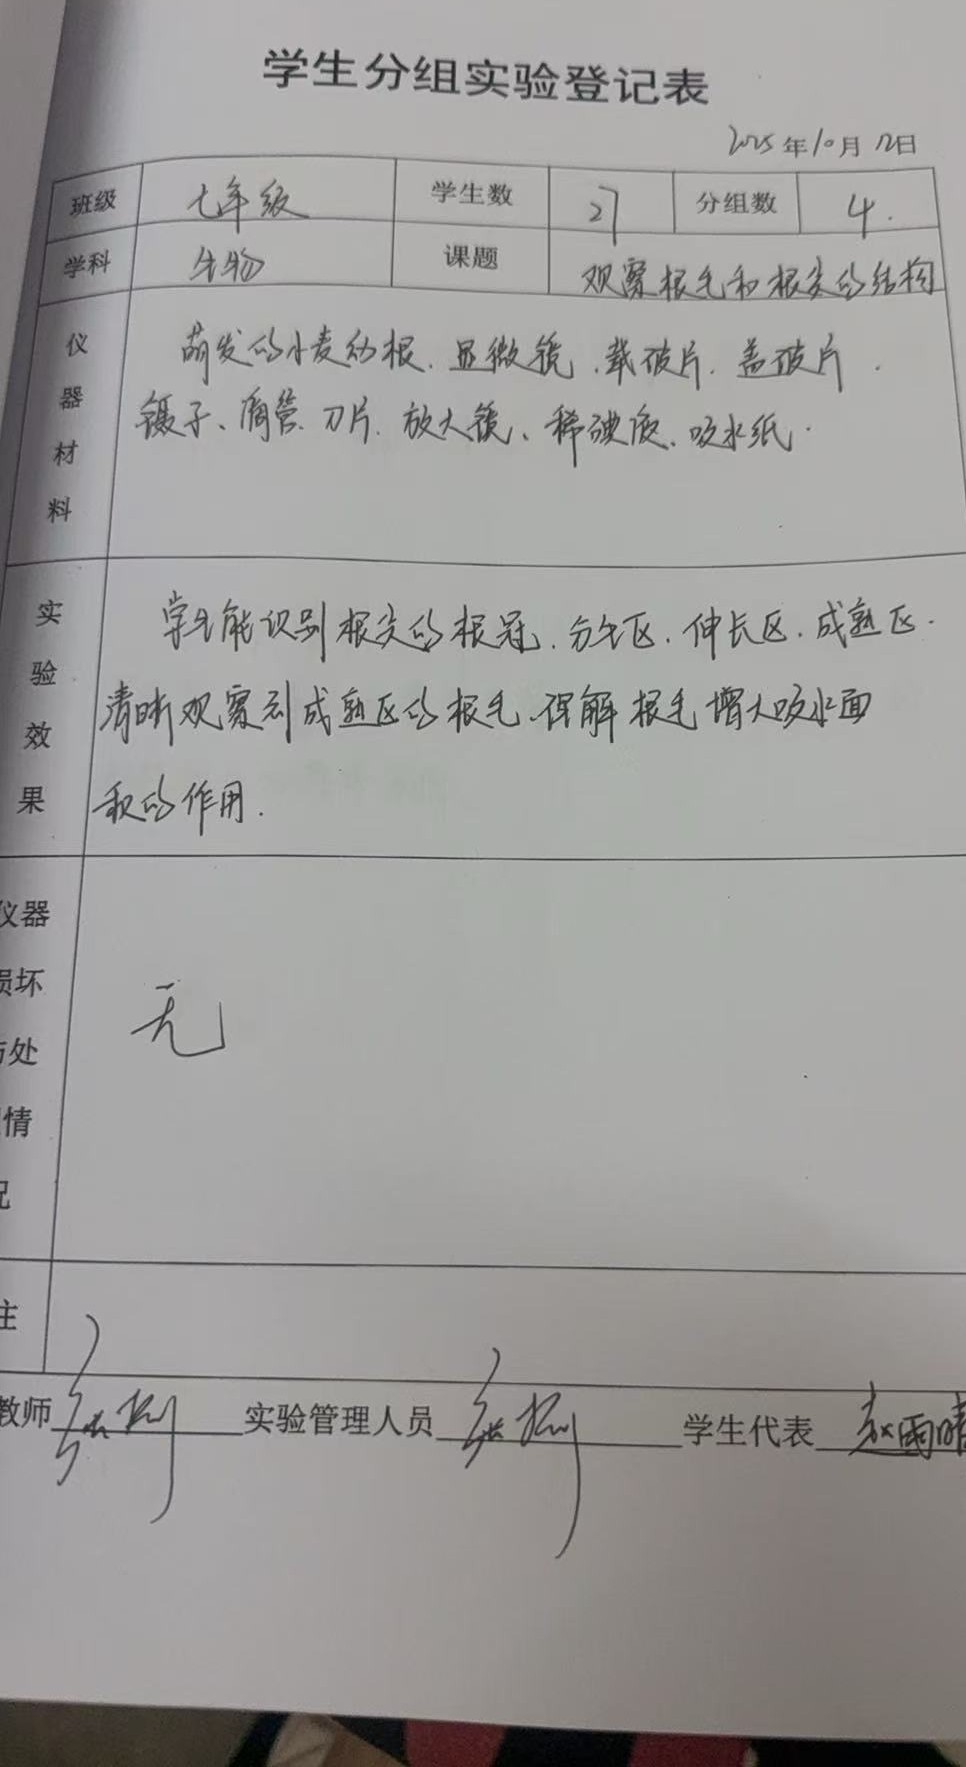 学生分组实验登记表
2025年10月12日
班级 七年级 学生数 27 分组数 4.
学科 生物 课题 观察根毛和根尖的结构
仪器材料 萌发的小麦幼根、显微镜、载玻片、盖玻片、
镊子、滴管、刀片、放大镜、稀碘液、吸水纸.
实验效果 学生能识别根尖的根冠、分生区、伸长区、成熟区.
清晰观察到成熟区的根毛,理解根毛增大吸水面
积的作用.
仪器
损坏
处 无
情
况
注
教师 实验管理人员 学生代表 赵雨晴